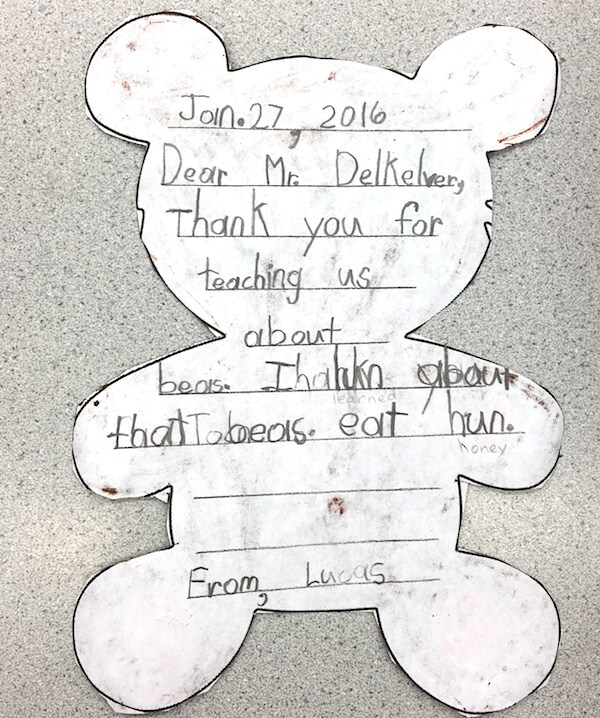 Jan. 27, 2016
Dear Mr. Delkelver,
Thank you for
teaching us
about
beas. I about
learned
that beas. eat hun.
honey
From, Lucas